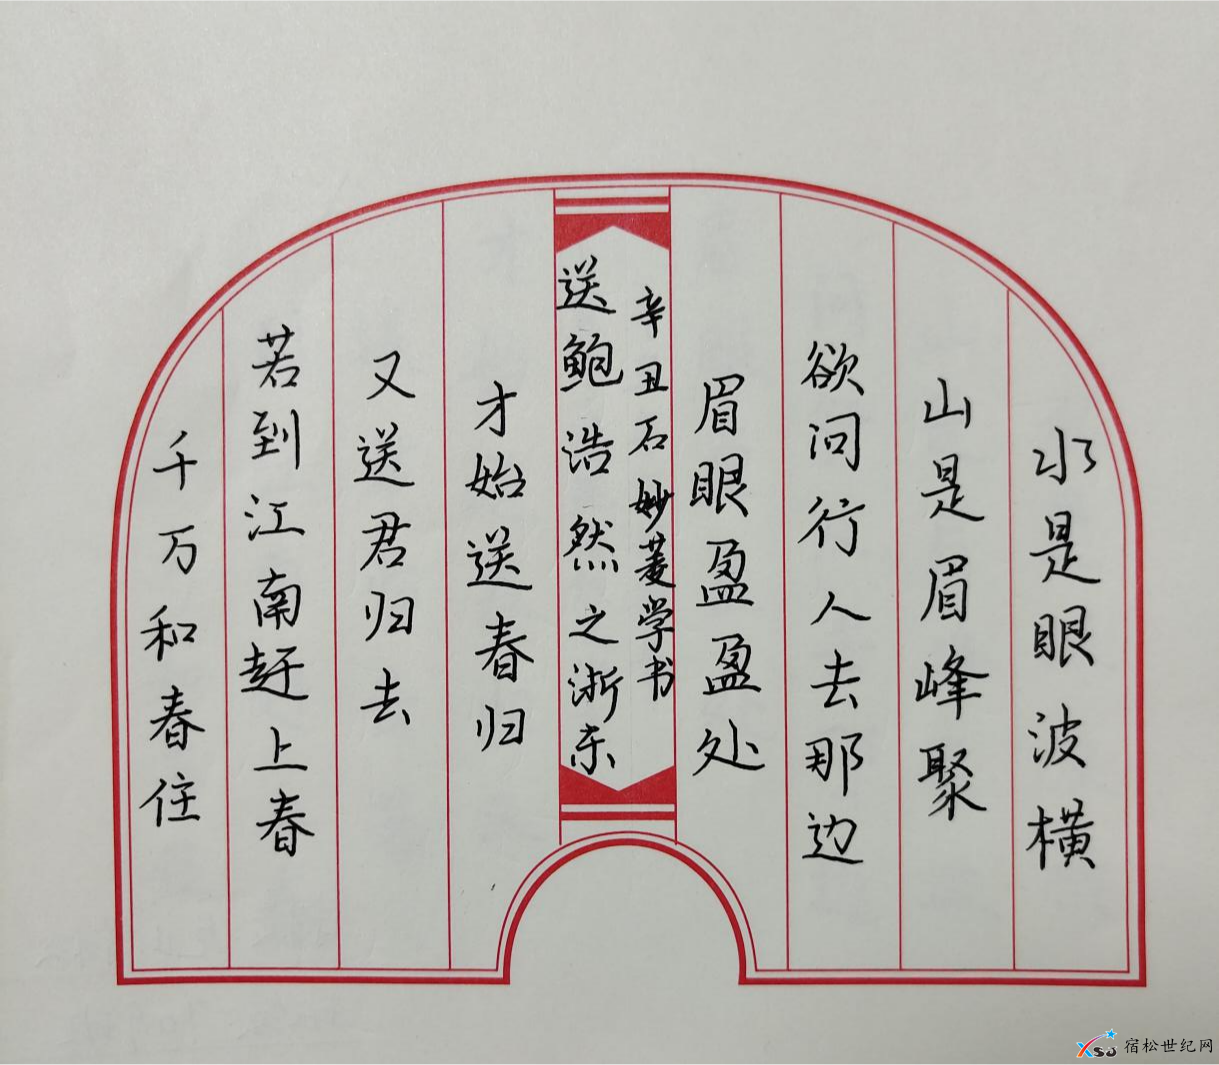 水是眼波横
山是眉峰聚
欲问行人去那边
眉眼盈盈处
辛丑石妙菱学书
送鲍浩然之浙东
才始送春归
又送君归去
若到江南赶上春
千万和春住
XSJ 宿松世纪网